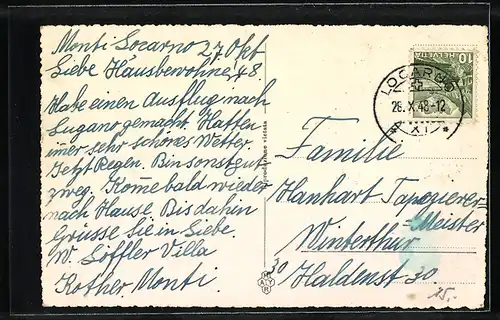 Monti Locarno 27 Okt
Liebe Hausbewohne, 48
Habe einen Ausflug nach
Lugano gemacht. Hatten
imer sehr schönes Wetter.
Jetzt Regen. Bin sonst gut
zweg. Kome bald wieder
nach Hause. Bis dahin
Grüsse sie in Liebe.
W. Löffler Villa
Rother Monti.
HELVETIA
10
LOCARNO
28.X.48-12
XI
Familie
Hanhart Tapezierer-
Meister
Winterthur
30 Haldenst 30
15.-